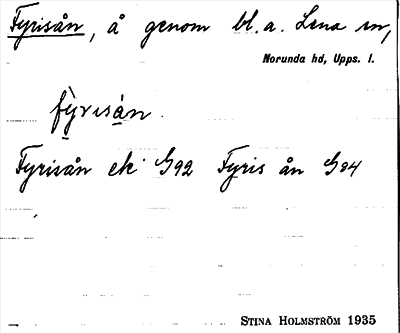 Fyrisån, å genom bl. a. Lena sn,
Norunda hd, Upps. l.
fỳ̱risȧ̱n.
Fyrisån ek G92 Fyris ån G84
STINA HOLMSTRÖM 1935